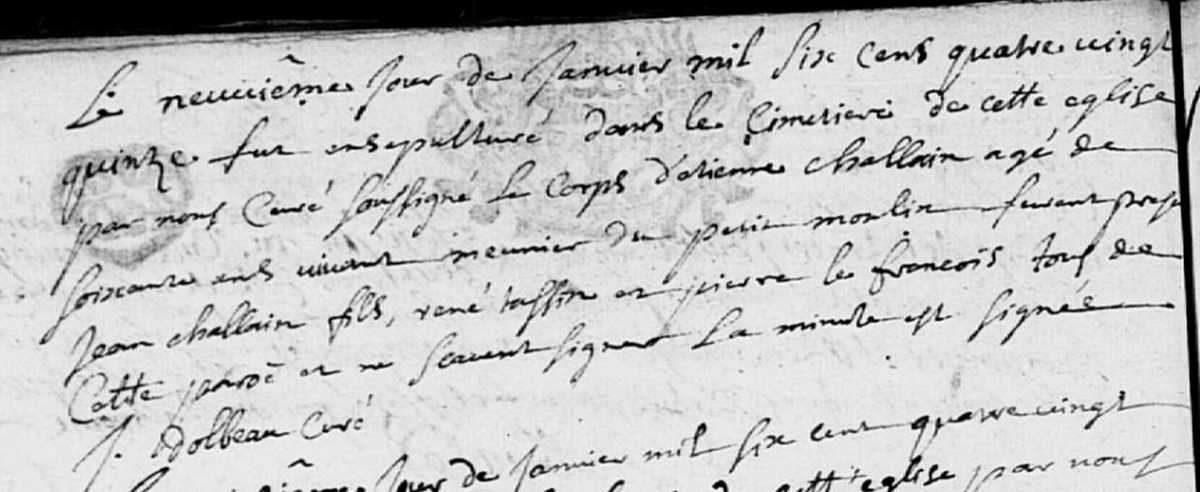 Le neuviême Jour de Janvier mil six cens quatre vingt
quinze fut ensepulturé dans le Cimetiere de cette eglise
par nous Curé soussigné le Corps d'etienne challain agé de
soixante ens vivant meunier du petit moulin furent pres
Jean challain fils, rené taffin et pierre le francois tous de
Cette paroē et ne scavent signer La minute est signée
J. Dolbeau Curé
Jour de Janvier mil six cent quatre vingt
cette eglise par nous